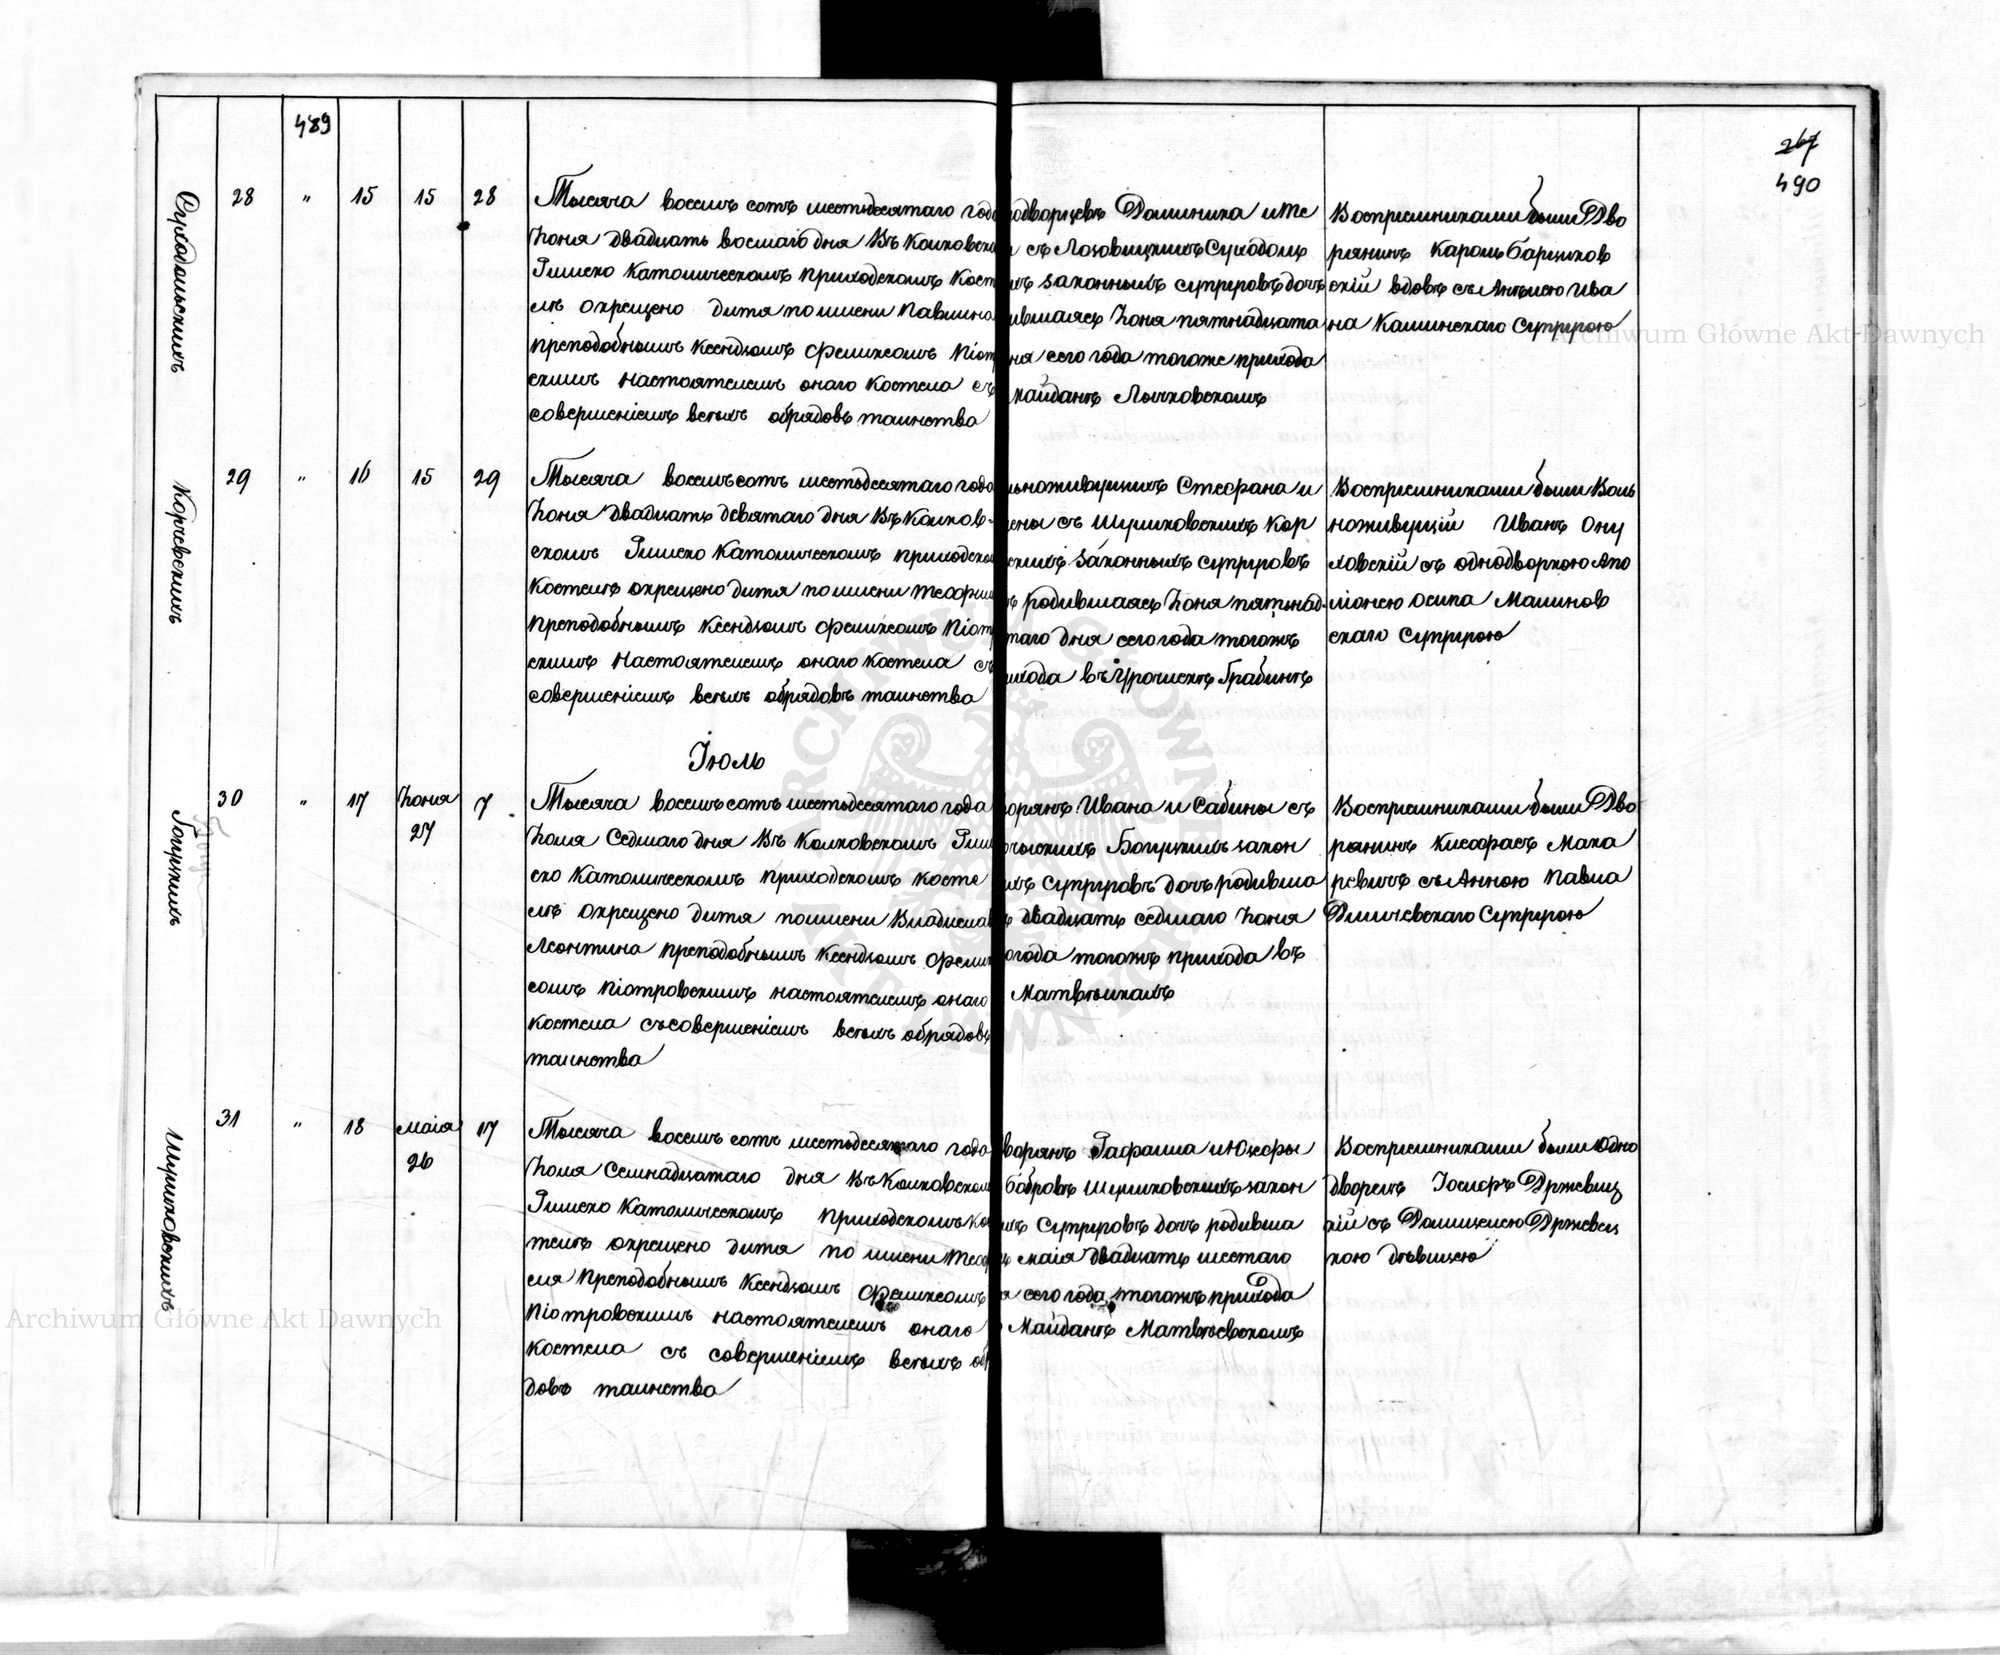 489
267
490
Суходольскихъ
28 " 15 15 28
Тысяча восемь сотъ шестьдесятаго года
Іюня двадцать восмаго дня въ Колковско
Римско Католическомъ приходскомъ Кост
лѣ окрещено дитя по имени Павлина
преподобнымъ Ксендзомъ Феликсомъ Піот
скимъ настоятелемъ онаго костела съ
совершеніемъ всѣхъ обрядовъ таинства
одворцевъ Доминика и Те
съ Лозовицкихъ Суходоль
хъ законныхъ супруговъ дочь
ившаясь Іюня пятнадцата
ня сего года тогоже прихода
майданѣ Лычковскомъ
Воспріемниками были Дво
рянинъ Кароль Барщиков
скій вдовъ съ Антылею Ива
на Калинскаго Супругою
Корчевскихъ
29 " 16 15 29
Тысяча восемь сотъ шестьдесятаго года
Іюня двадцать девятаго дня въ Колков-
скомъ Римско Католическомъ приходско
Костелѣ окрещено дитя по имени Теофил
преподобнымъ Ксендзомъ Феликсомъ Піот
скимъ Настоятелемъ онаго костела съ
совершеніемъ всѣхъ обрядовъ таинства
ьноживущихъ Стефана и
ены съ Шумковскихъ Кор
скихъ законныхъ супруговъ
ь родившаясь Іюня пятьнад-
таго дня сего года тогожъ
ихода въ Урочискѣ Грабинѣ
Воспріемниками были Воль
ноживущій Иванъ Ону
ховскій съ однодворкою Апо
лонею Осипа Малинов
скаго Супругою
Іюль
Гоуцкихъ
30 " 17 Іюня 27 7
Тысяча восемь сотъ шестьдесятаго года
Іюля Седмаго дня въ Колковскомъ Рим
ско Католическомъ приходскомъ косте
лѣ окрещено дитя по имени Владислав
Леонтина преподобнымъ Ксендзомъ Фелик
сомъ Піотровскимъ настоятелемъ онаго
костела съ совершеніемъ всѣхъ обрядовъ
таинства
орянъ Ивана и Сабины съ
Богуцкихъ закон
хъ супруговъ дочь родивша
ь двадцать седмаго Іюня
огода тогожъ прихода въ
Матвѣйкахъ
Воспріемниками были Дво
рянинъ Ксеофасъ Мака
ревичъ съ Анною Павла
Длинчевскаго Супругою
Шумковскихъ
31 " 18 маія 26 17
Тысяча восемь сотъ шестьдесятаго года
Іюля Семнадцатаго дня въ Колковском
Римско Католическомъ приходскомъ ко
телѣ окрещено дитя по имени Теоф
еля преподобнымъ Ксендзомъ Феликсомъ
Піотровскимъ настоятелемъ онаго
костела съ совершеніемъ всѣхъ обр
довъ таинства
ворянъ Рафаила и Юзефы
Бобровъ Шумковскихъ закон
хъ супруговъ дочь родивша
ь маія двадцать шестаго
я сего года тогожъ прихода
Майданѣ Матвѣевскомъ
Воспріемниками были Одно
дворецъ Іосифъ Држевиц
кій съ Домицелею Држевец
кою дѣвицею
Archiwum Główne Akt Dawnych
Archiwum Główne Akt Dawnych